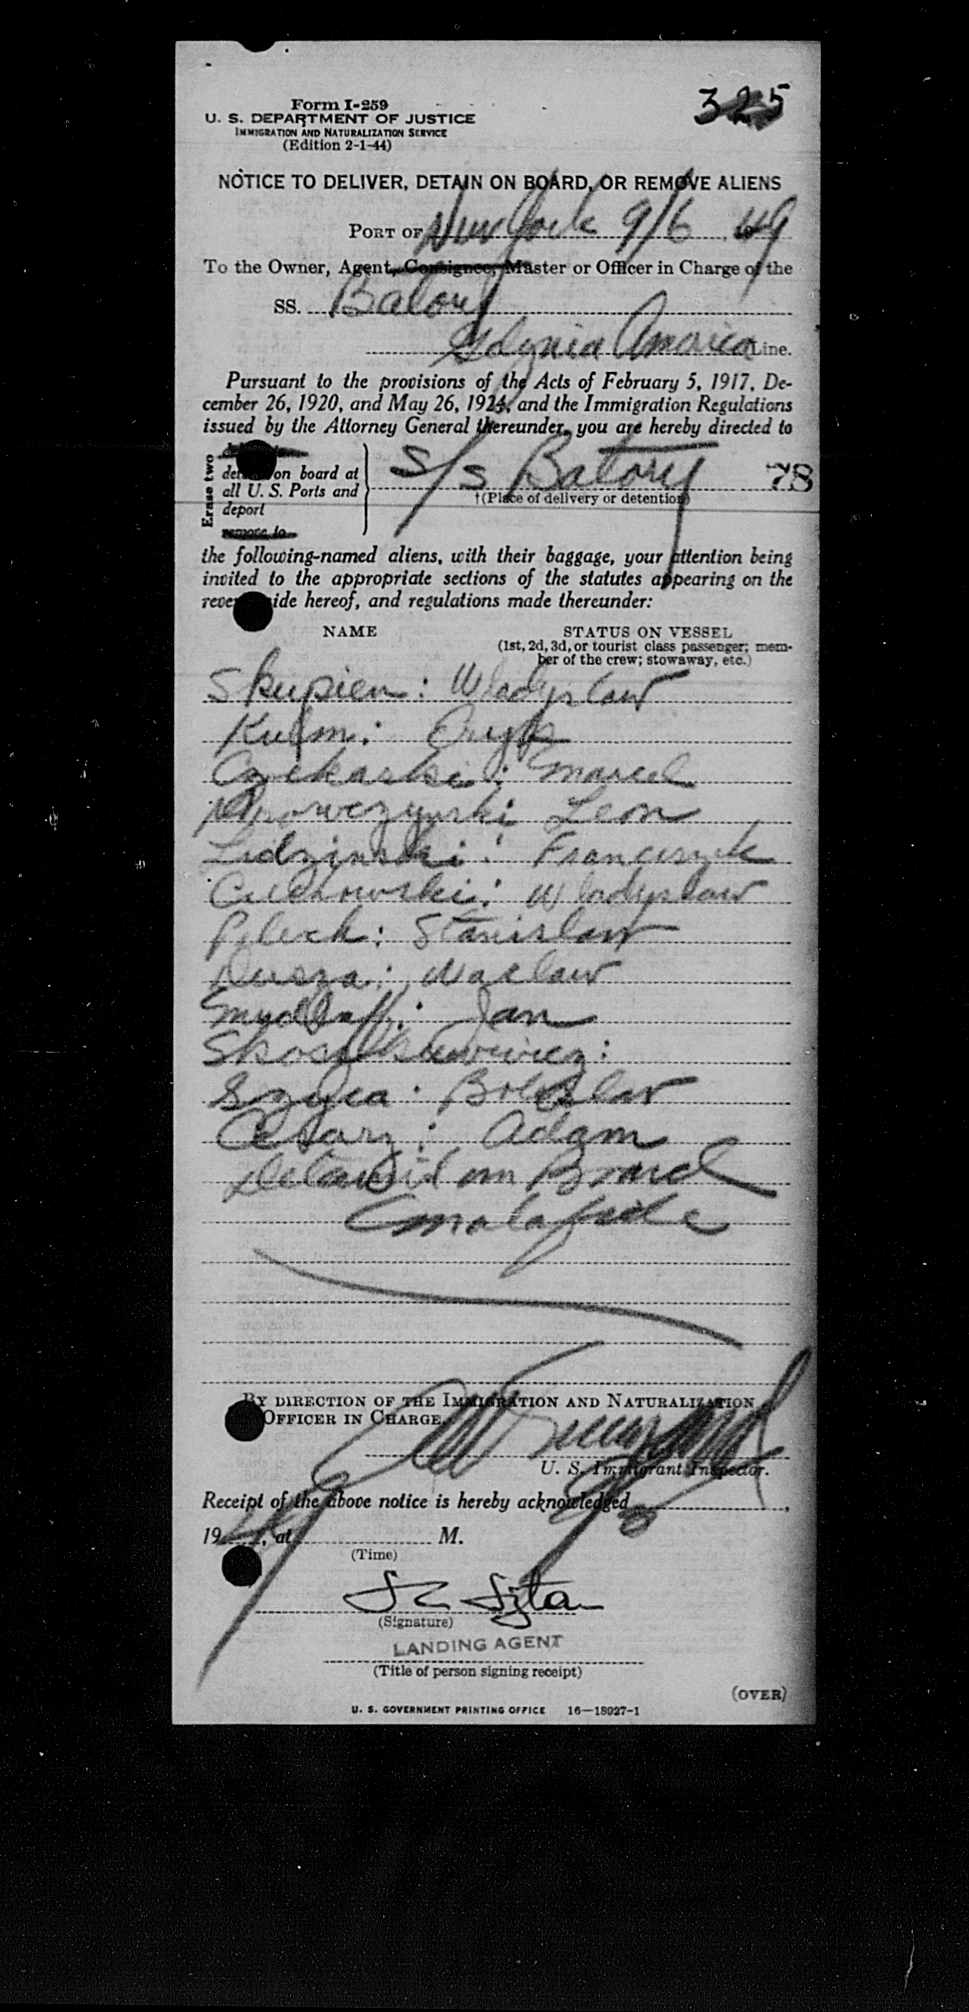 325
Form I-259
U. S. DEPARTMENT OF JUSTICE
IMMIGRATION AND NATURALIZATION SERVICE
(Edition 2-1-44)
NOTICE TO DELIVER, DETAIN ON BOARD, OR REMOVE ALIENS
PORT OF New York 9/6, 49
To the Owner, Agent, Consignee, Master or Officer in Charge of the
SS. Batory
Gdynia America Line.
Pursuant to the provisions of the Acts of February 5, 1917, De-
cember 26, 1920, and May 26, 1924, and the Immigration Regulations
issued by the Attorney General thereunder, you are hereby directed to
Erase two
on board at
all U. S. Ports and
deport
remove to
S/S Batory 78
†(Place of delivery or detention)
the following-named aliens, with their baggage, your attention being
invited to the appropriate sections of the statutes appearing on the
side hereof, and regulations made thereunder:
NAME STATUS ON VESSEL
(1st, 2d, 3d, or tourist class passenger; mem-
ber of the crew; stowaway, etc.)
Skupien: Wladyslaw
Eryk
Czekaski: Marcel
Leon
Lidzinski: Franciszek
Cichowski: Wladyslaw
Stanislaw
Dusza: Waclaw
Jan
Szyca: Boleslaw
Cesarz: Adam
Detained on Board
malafide
BY DIRECTION OF THE IMMIGRATION AND NATURALIZATION
OFFICER IN CHARGE.
U. S. Immigrant Inspector.
Receipt of the above notice is hereby acknowledged 9/6,
1949, at M.
(Time)
(Signature)
LANDING AGENT
(Title of person signing receipt)
(OVER)
U. S. GOVERNMENT PRINTING OFFICE 16—18027-1